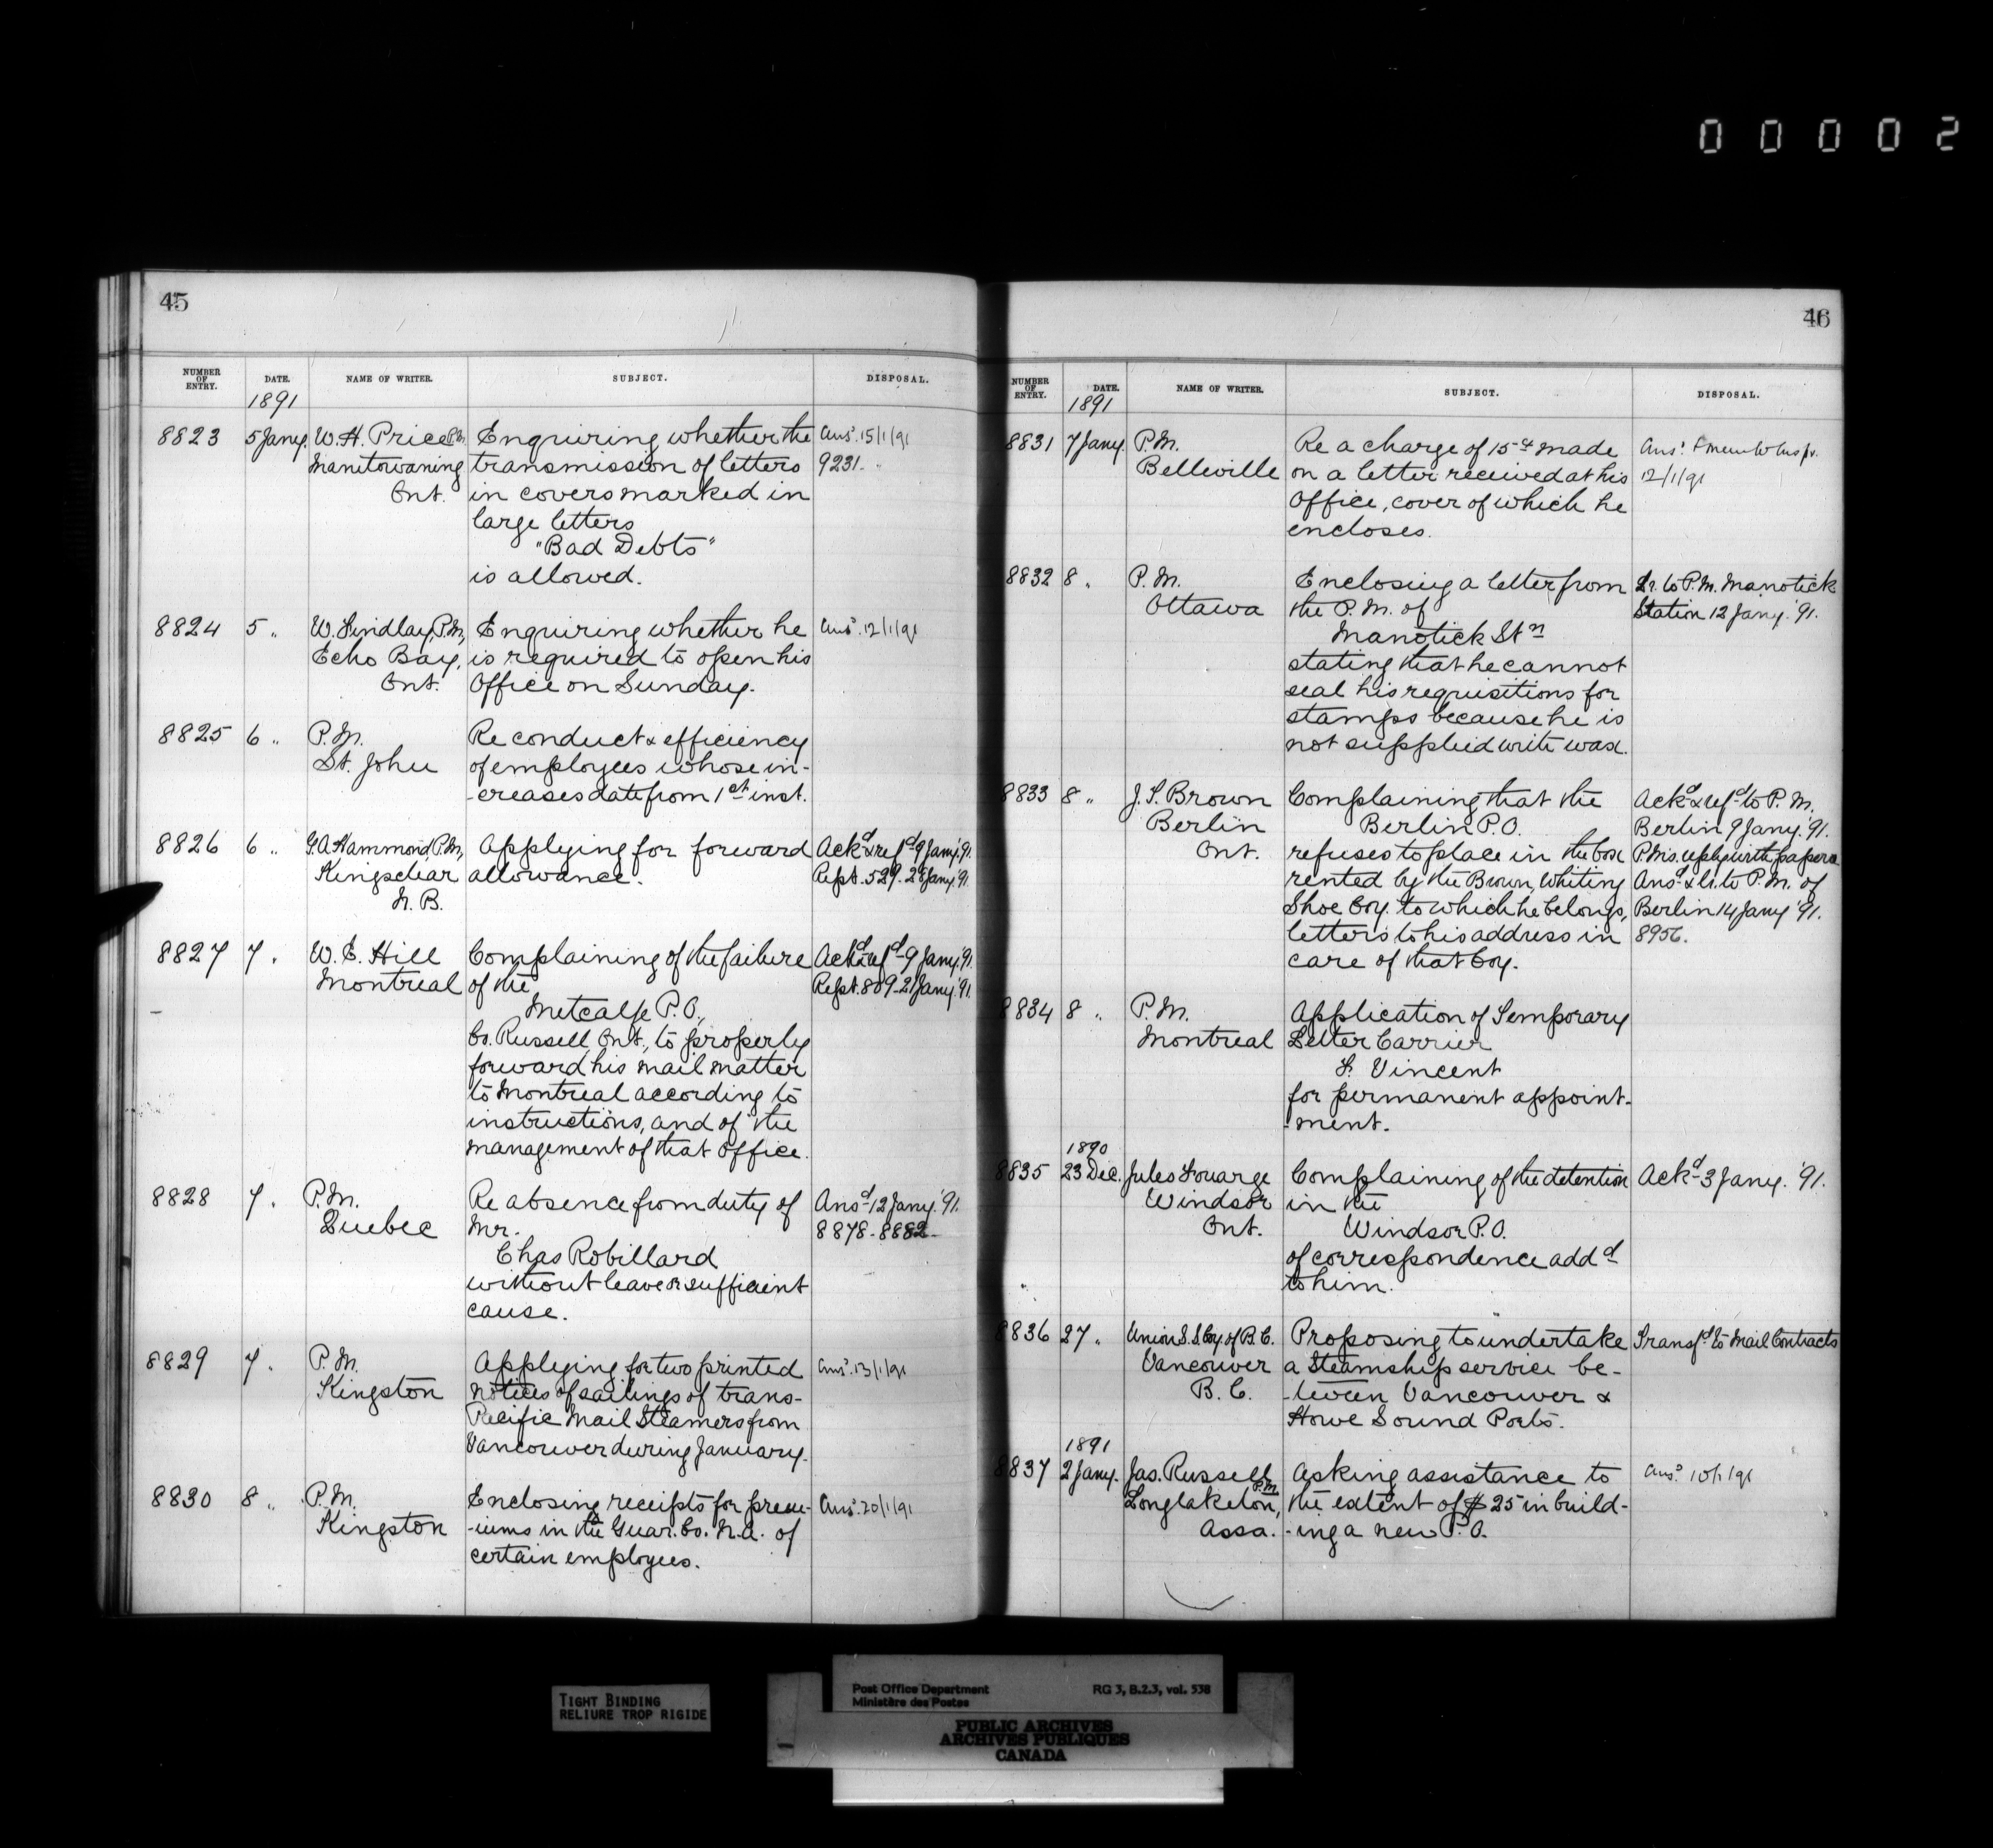 00002
45
NUMBER OF ENTRY. DATE. NAME OF WRITER. SUBJECT. DISPOSAL.
1891
8823 5 Jany. W. H. Price P.M. Enquiring whether the Ansd. 15/1/91
Manitowaning transmission of letters 9231.
Ont. in covers marked in
large letters
"Bad Debts"
is allowed.
8824 5 " W. Lindlay, P.M., Enquiring whether he Ansd. 12/1/91
Echo Bay, is required to open his
Ont. Office on Sunday.
8825 6 " P.M. Re conduct & efficiency
St. John of employees whose in-
-creases date from 1st inst.
8826 6 " G.A. Hammond, P.M., Applying for forward Ackd & refd 9 Jany. '91.
Kingsclear allowance. Rept. 529. 28 Jany. '91.
N. B.
8827 7 " W. E. Hill Complaining of the failure Ackd & refd 9 Jany. '91.
Montreal of the Rept. 809 - 21 Jany. '91.
Metcalfe P.O.,
Co. Russell Ont., to properly
forward his mail matter
to Montreal according to
instructions, and of the
management of that Office.
8828 7 " P.M. Re absence from duty of Ansd 12 Jany. '91.
Quebec Mr. 8878 - 8882 -
Chas Robillard
without leave or sufficient
cause.
8829 7 " P.M. Applying for two printed Ansd. 13/1/91
Kingston notices of sailings of trans-
Pacific Mail Steamers from
Vancouver during January.
8830 8 " P.M. Enclosing receipts for prem- Ansd. 20/1/91
Kingston -iums in the Guar. Co. N.A. of
certain employees.
46
NUMBER OF ENTRY. DATE. NAME OF WRITER. SUBJECT. DISPOSAL.
1891
8831 7 Jany. P.M. Re a charge of 15cts made Ansd. & memo to Inspr.
Belleville on a letter received at his 12/1/91
Office, cover of which he
encloses.
8832 8 " P.M. Enclosing a letter from Lr. to P.M. Manotick
Ottawa the P.M. of Station 12 Jany. '91.
Manotick Stn
stating that he cannot
seal his requisitions for
stamps because he is
not supplied with wax.
8833 8 " J. S. Brown Complaining that the Ackd & refd to P.M.
Berlin Berlin P.O. Berlin 9 Jany. '91.
Ont. refuses to place in the box P.M's. reply with papers
rented by the Brown, Whiting Ansd & lr. to P.M. of
Shoe Coy. to which he belongs, Berlin 14 Jany '91.
letters to his address in 8956.
care of that Coy.
8834 8 " P.M. Application of Temporary
Montreal Letter Carrier
F. Vincent
for permanent appoint-
-ment.
1890
8835 23 Dec. Jules Fouarge Complaining of the detention Ackd - 3 Jany. '91.
Windsor in the
Ont. Windsor P.O.
of correspondence addd
to him.
8836 27 " Union S.S. Coy. of B.C. Proposing to undertake Transfd to Mail Contracts
Vancouver a Steamship service be-
B. C. -tween Vancouver &
Howe Sound Ports.
1891
8837 2 Jany. Jas. Russell Asking assistance to Ansd. 10/1/91
P.M.
Longlaketon, the extent of $25 in build-
Assa. -ing a new P.O.
TIGHT BINDING
RELIURE TROP RIGIDE
Post Office Department RG 3, B.2.3, vol. 538
Ministère des Postes
PUBLIC ARCHIVES
ARCHIVES PUBLIQUES
CANADA